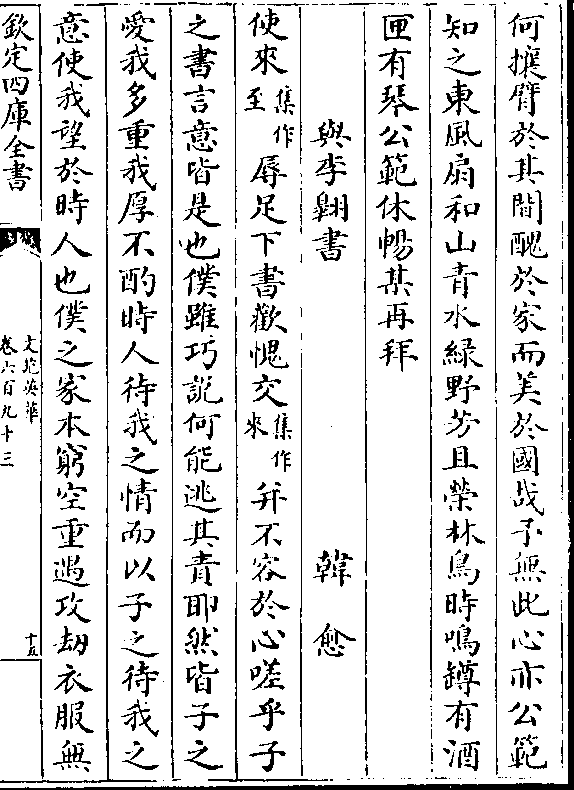 何攘臂於其間醜於家而美於國哉予無此心亦公範
知之東風扇和山青水緑野芳且榮林鳥時鳴罇有酒
匣有琴公範休暢某再拜
與李翺書 韓愈
使來集作至辱足下書歡愧交集作來并不容於心嗟乎子
之書言意皆是也僕雖巧説何能逃其責耶然皆子之
愛我多重我厚不酌時人待我之情而以子之待我之
意使我望於時人也僕之家本窮空重遇攻劫衣服無
欽定四庫全書
文苑英華
卷六百九十三
十五